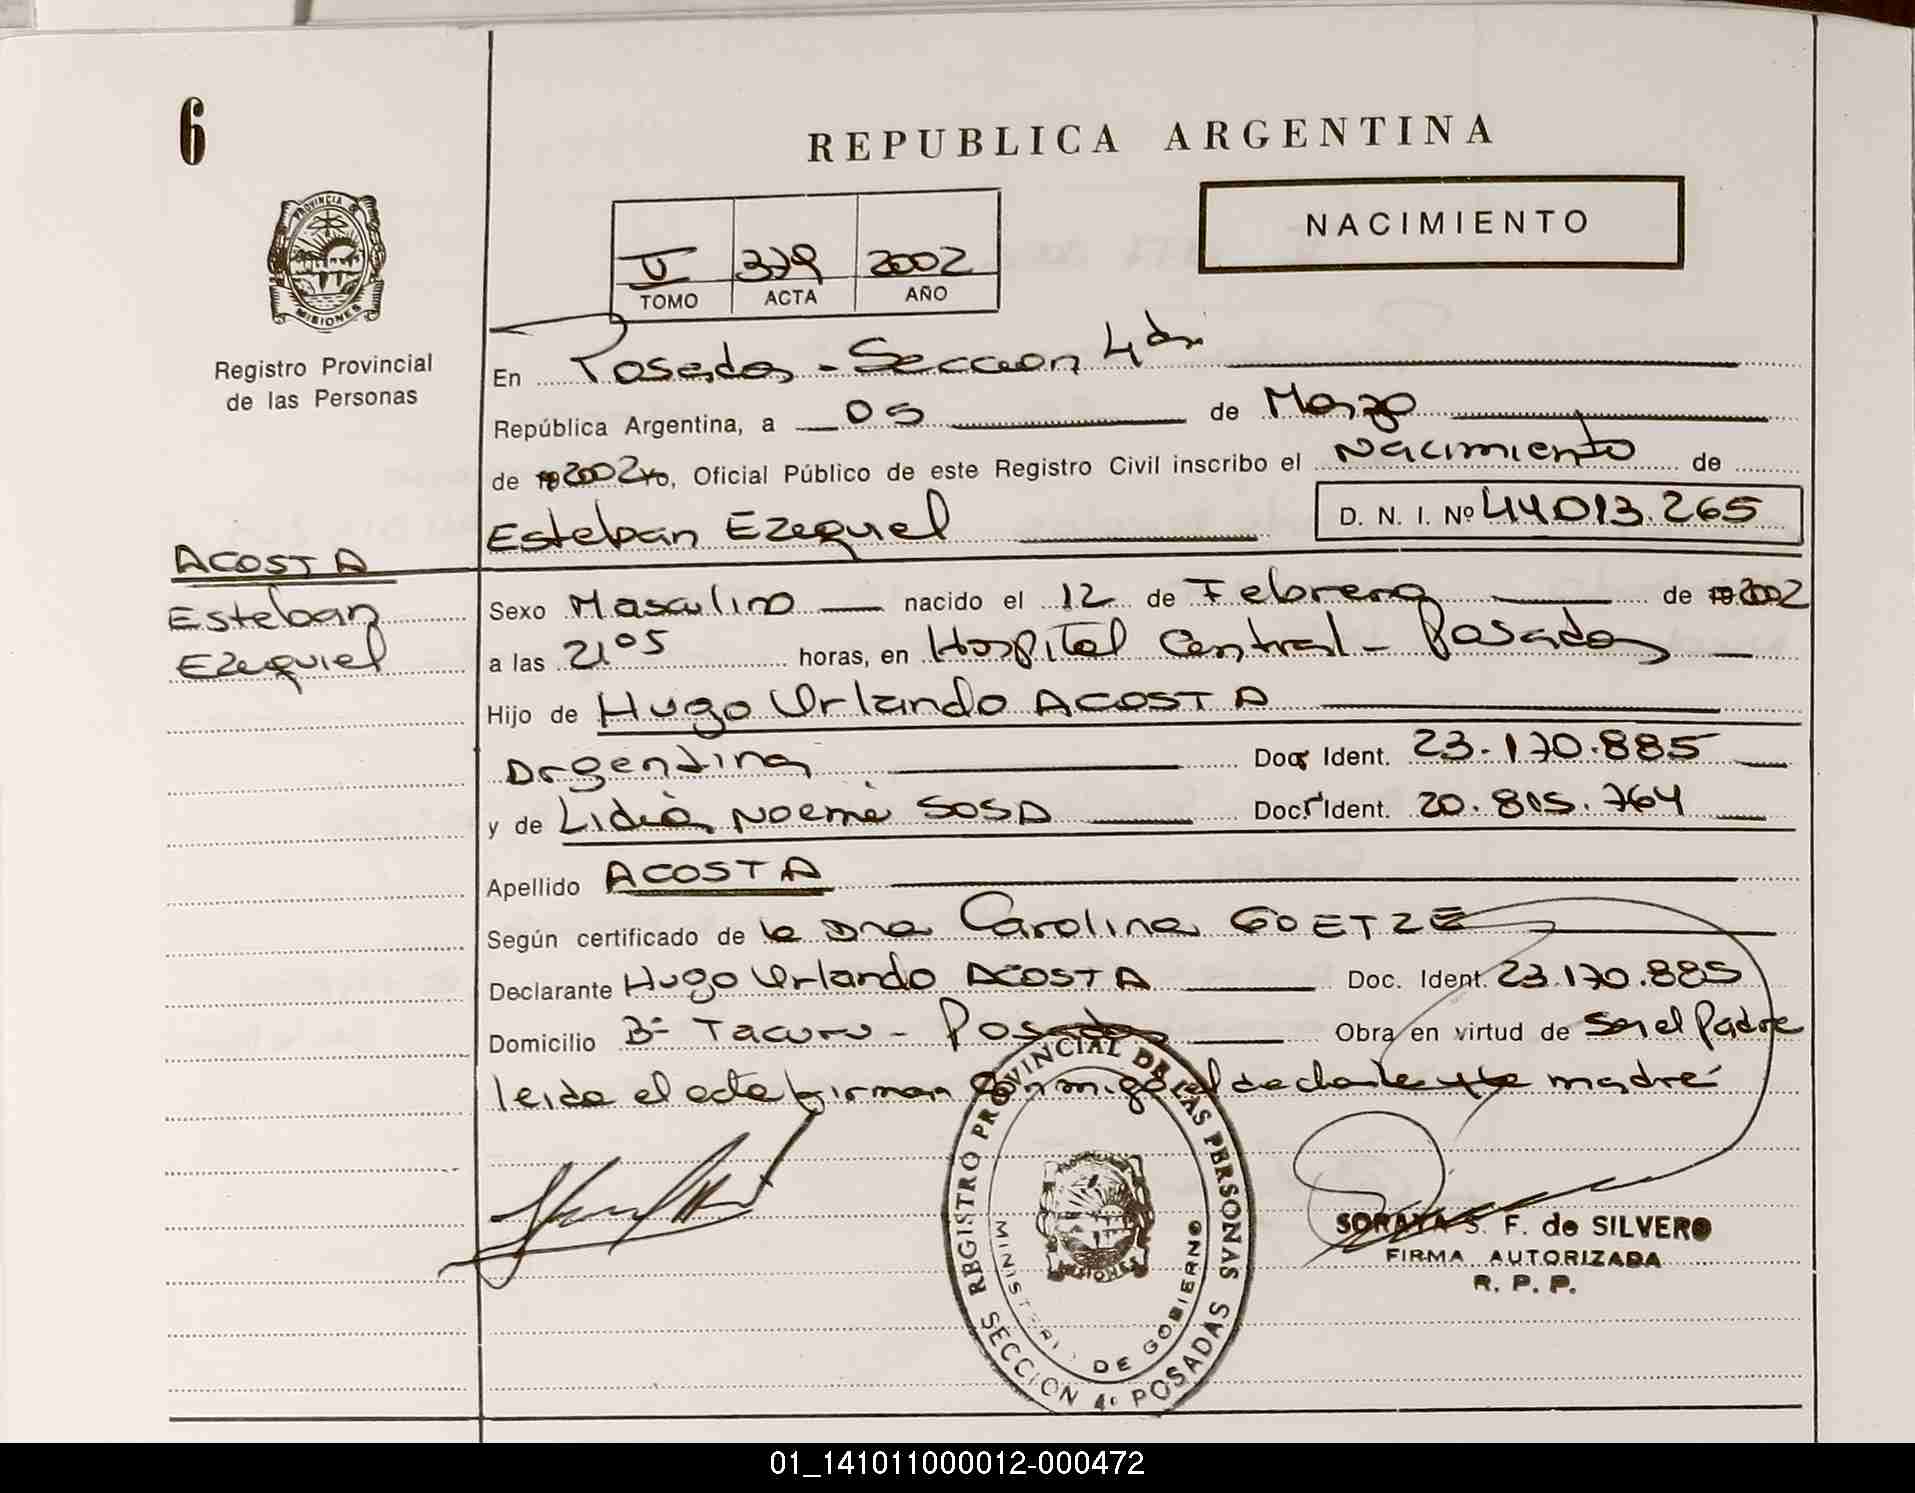 6
REPUBLICA ARGENTINA
NACIMIENTO
PROVINCIA DE
MISIONES
Registro Provincial
de las Personas
II 379 2002
TOMO ACTA AÑO
En Posadas - Seccion 4ta
República Argentina, a 05 de Marzo
de 2002 yo, Oficial Público de este Registro Civil inscribo el Nacimiento de
Esteban Ezequiel D. N. I. Nº 44013.265
ACOSTA
Esteban
Ezequiel
Sexo Masculino nacido el 12 de Febrero de 2002
a las 21 05 horas, en Hospital Central - Posadas
Hijo de Hugo Orlando ACOSTA
Argentina Doc. Ident. 23.170.885
y de Lidia Noemi SOSA Doc. Ident. 20.815.764
Apellido ACOSTA
Según certificado de la Dra Carolina GOETZE
Declarante Hugo Orlando ACOSTA Doc. Ident. 23.170.885
Domicilio Bº Tacuru - Posadas Obra en virtud de Ser el Padre
leida el acta firman conmigo el declarante y la madre
REGISTRO PROVINCIAL DE LAS PERSONAS
MINISTERIO DE GOBIERNO
MISIONES
SECCION 4º POSADAS
SORAYA S. F. de SILVERO
FIRMA AUTORIZADA
R. P. P.
01_141011000012-000472